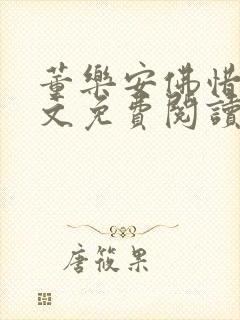 董樂安佛惜
文免費閱讀
唐筱果